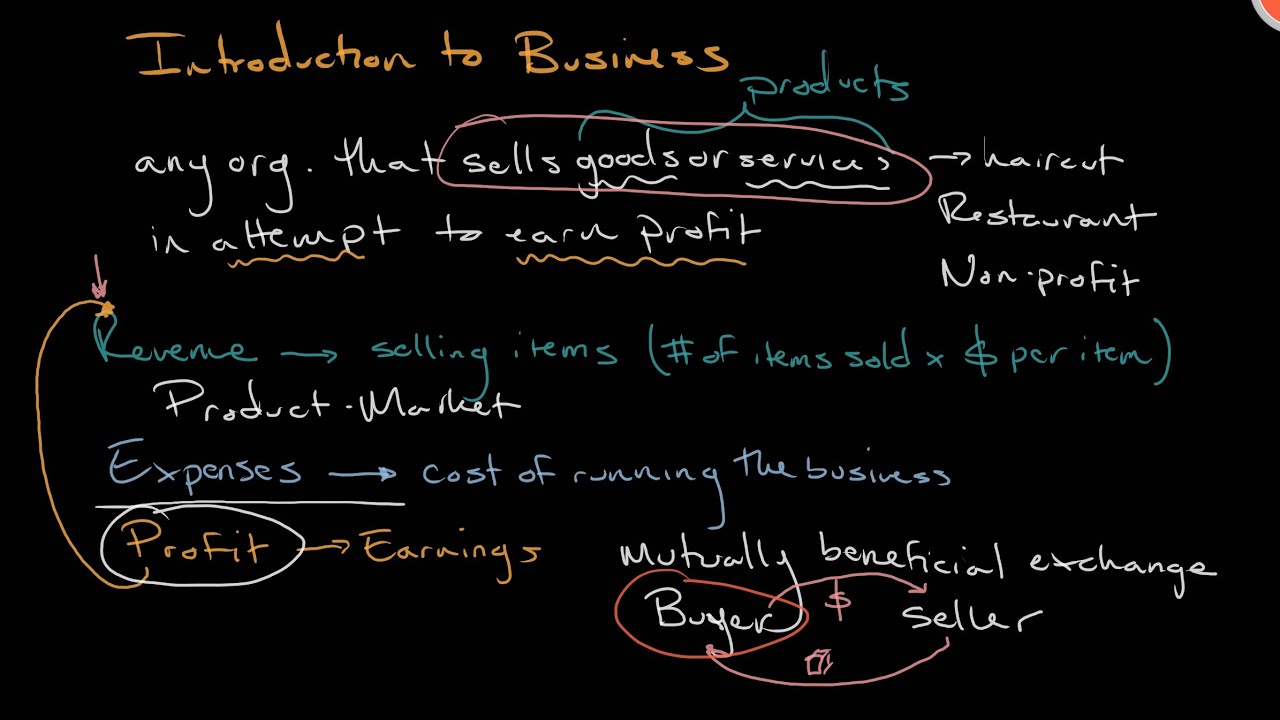 Introduction to Business
products
any org. that sells goods or services → haircut
Restaurant
in attempt to earn profit
Non-profit
Revenue → selling items (# of items sold x $ per item)
Product-Market
Expenses → cost of running the business
Profit → Earnings
Mutually beneficial exchange
Buyer $ seller